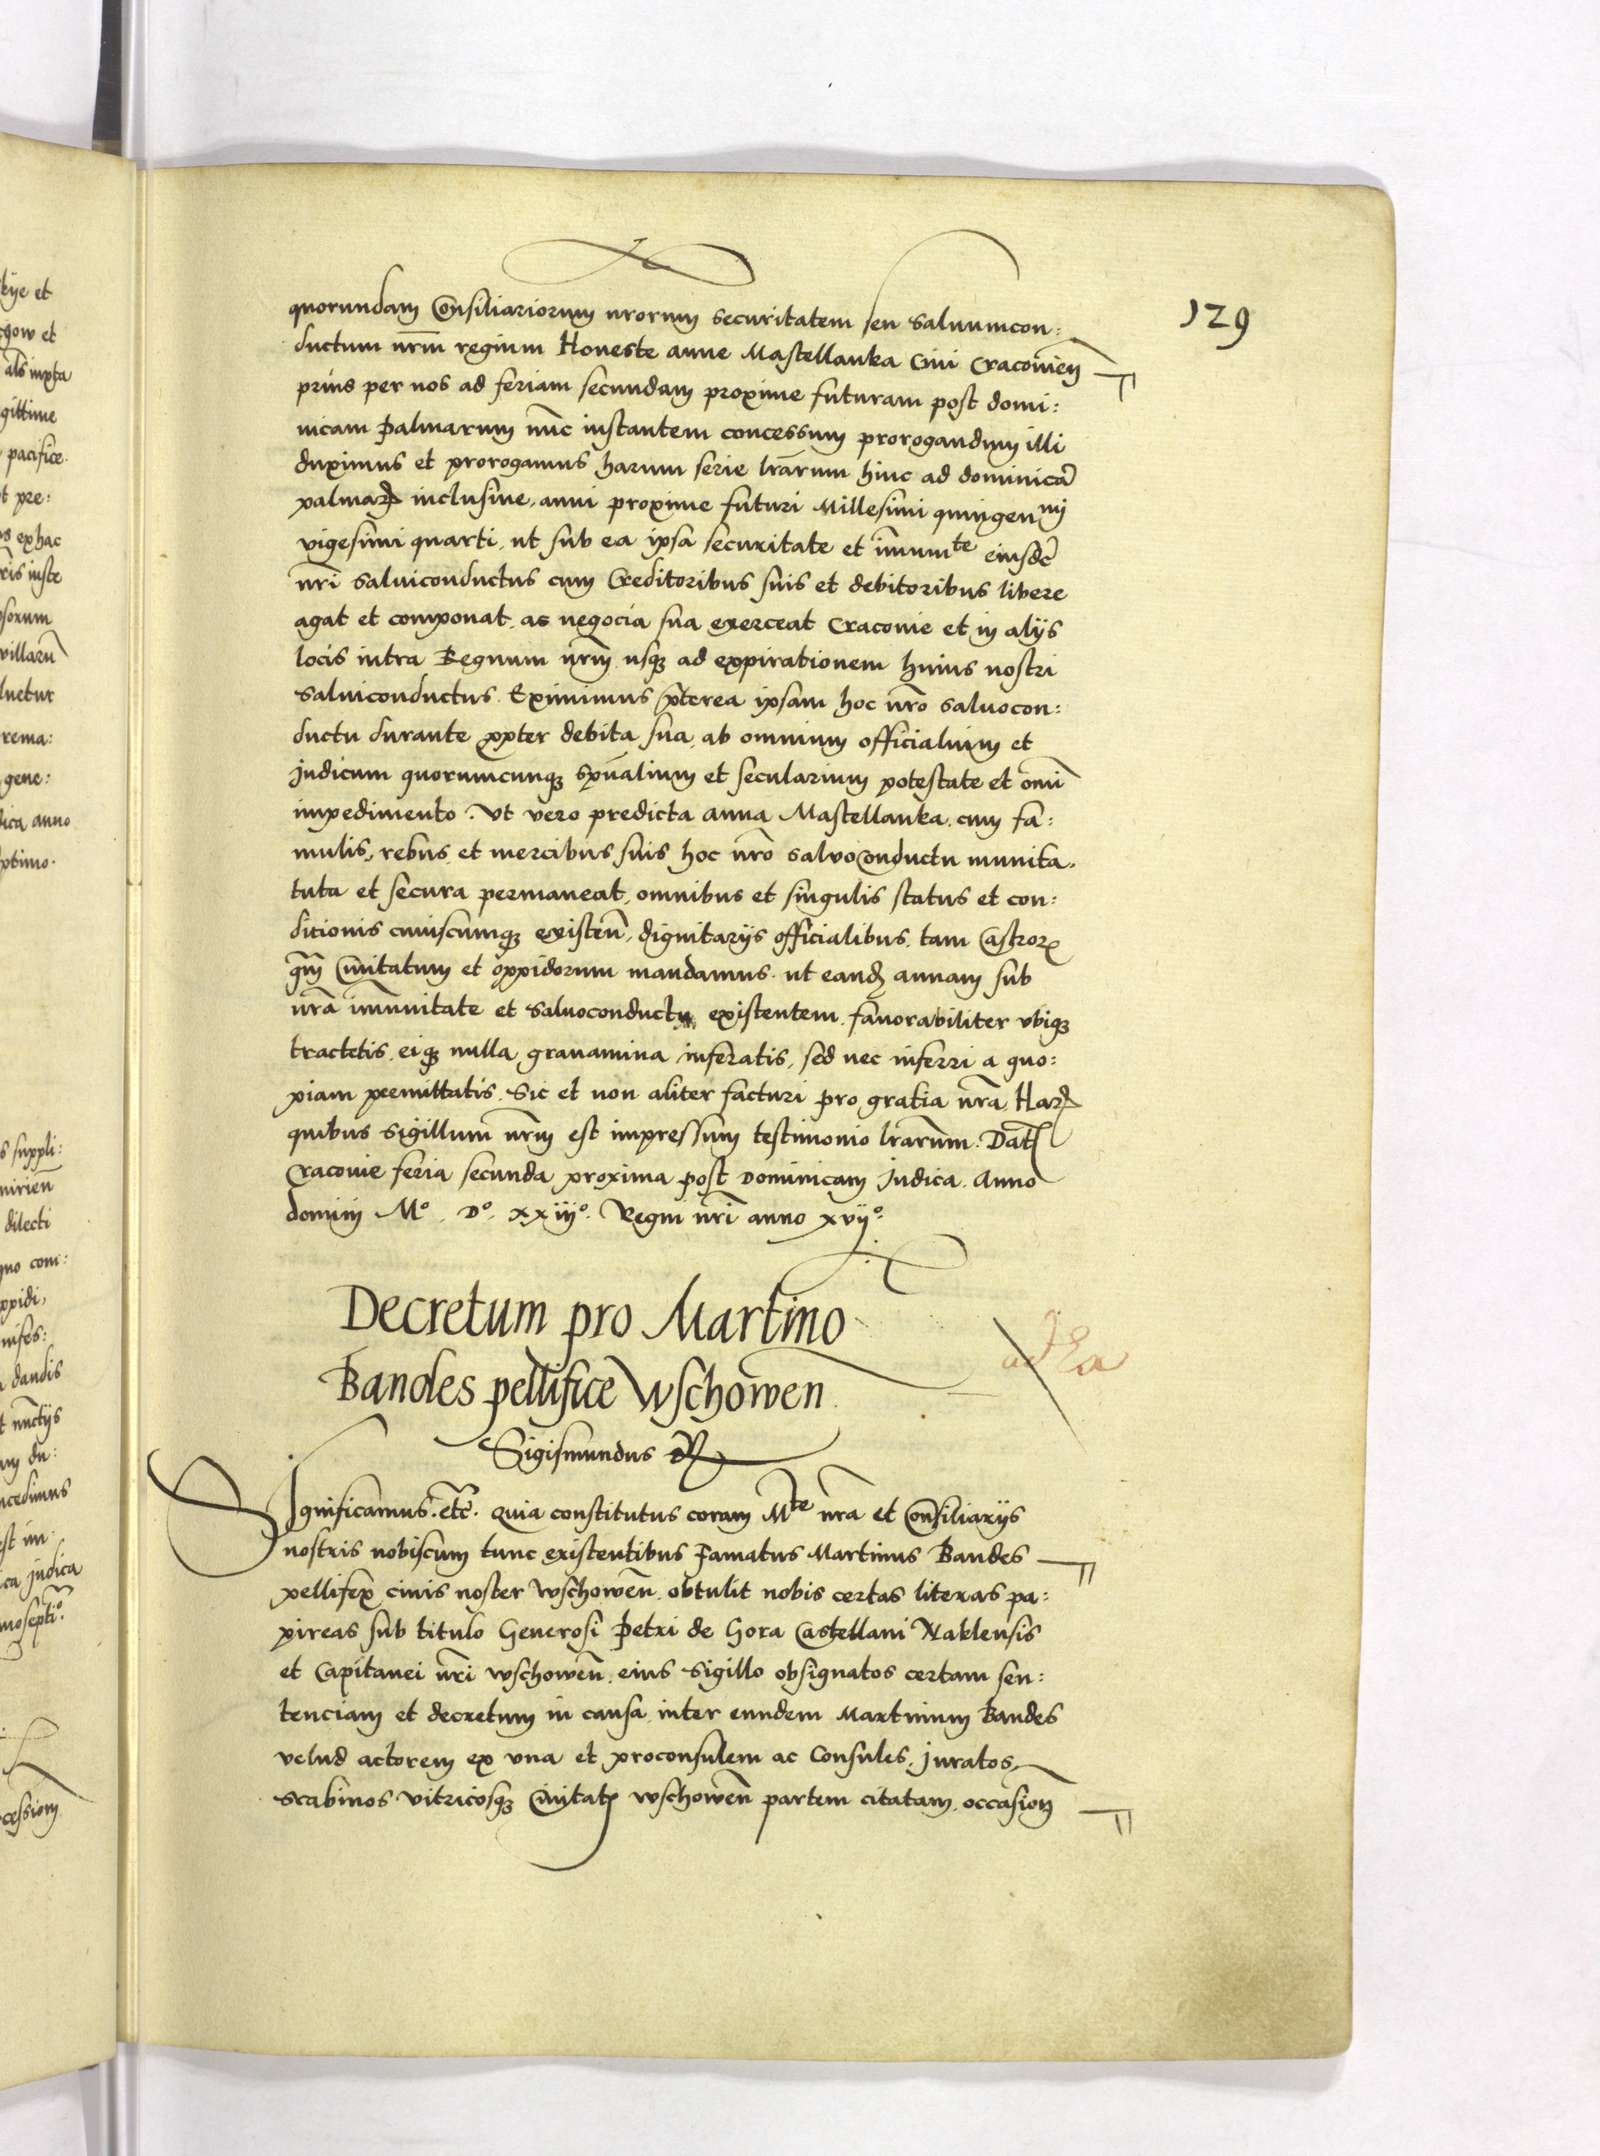 129
quorundam Consiliariorum nrorum securitatem seu saluumcon:
ductum nrm regium Honeste anne Mastellanka Ciui Cracouien
prius per nos ad feriam secundam proxime futuram post domi:
nicam Palmarum nuc instantem concessum prorogandum illi
duximus et prorogamus harum serie lrarum hinc ad dominica
palmarum inclusiue anni proxime futuri Millesimi quingenmi
vigesimi quarti, ut sub ea ipsa securitate et imumte eiusde
nri saluiconductus cum Creditoribus suis et debitoribus libere
agat et componat ac negocia sua exerceat Cracouie et in alijs
locis intra Regnum nrm usque ad expirationem huius nostri
saluiconductus. Eximimus preterea ipsam hoc nro saluocon:
ductu durante propter debita sua, ab omnium officialium et
Judicum quorumcunque spualium et secularium potestate et omi
impedimento. Ut vero predicta anna Mastellanka cum fa:
mulis, rebus et mercibus suis hoc nro saluoconductu munita,
tuta et secura permaneat, omnibus et singulis status et con:
ditionis cuiuscumque existen, dignitarijs officialibus, tam Castrorum
qm Ciuitatum et oppidorum mandamus. ut eandem annam sub
nra imunitate et saluoconductu existentem fauorabiliter ubique
tractetis, eique nulla grauamina inferatis, sed nec inferri a quo:
piam permittatis. Sic et non aliter facturi pro gratia nra Harum
quibus Sigillum nrm est impressum testimonio lrarum. Dat
Cracouie feria secunda proxima post Dominicam Judica. Anno
domini Mº. Dº. XXiijº. Regni nri anno xvijº.
Decretum pro Martino
Bandes pellifice Wschowen
ad
Sigismundus R
Significamus. etc. Quia constitutus coram Mte nra et Consiliarijs
nostris nobiscum tunc existentibus Famatus Martinus Bandes
pellifex ciuis noster wschowen obtulit nobis certas literas pa:
pireas sub titulo Generosi Petri de Gora Castellani Naklensis
et Capitanei nri wschowen eius sigillo obsignatos certam sen:
tenciam et decretum in causa inter eundem Martinum Bandes
velud actorem ex una et proconsulem ac Consules, Juratos,
scabinos vitricosque Ciuitatis wschowen partem citatam occasion